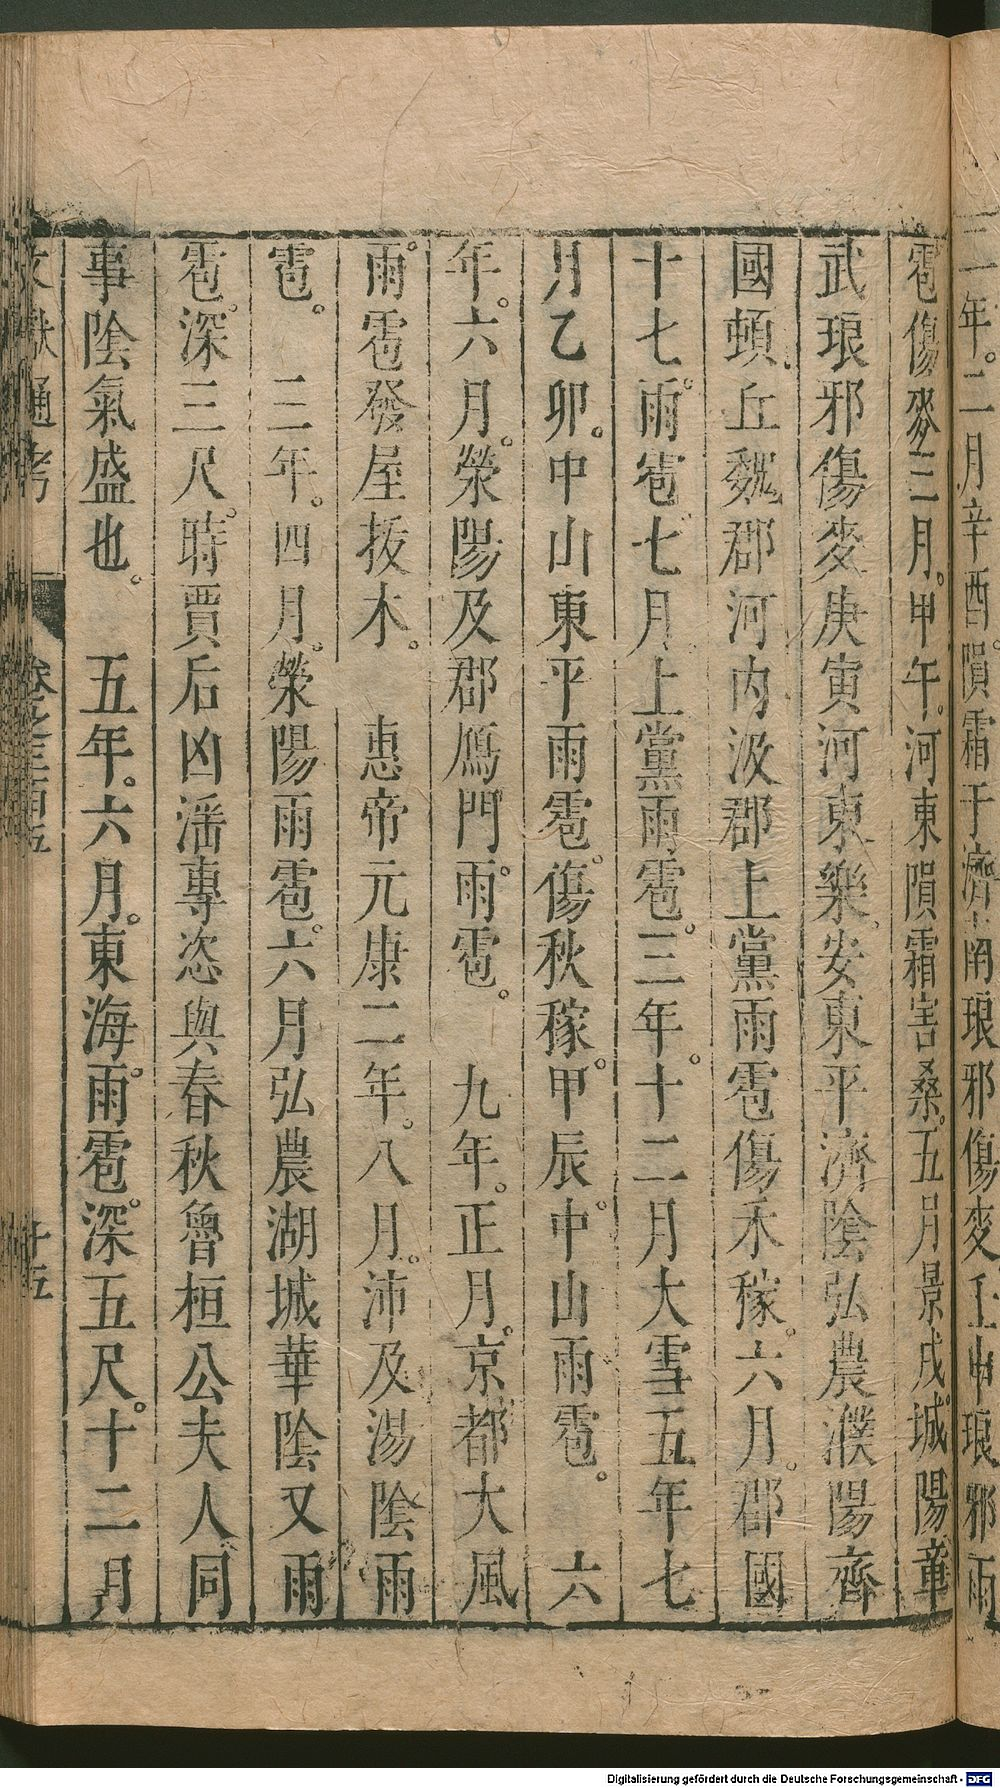 二年。二月辛酉。隕霜于濟南琅邪傷麥壬申琅邪雨
雹傷麥三月。甲午。河東隕霜害桑。五月景戌。城陽章
武琅邪傷麥庚寅河東樂安東平濟陰弘農濮陽齊
國頓丘魏郡河内汲郡上黨雨雹傷禾稼。六月。郡國
十七雨。雹七月。上黨雨雹。三年。十二月大雪五年七
月乙卯。中山東平雨雹。傷秋稼。甲辰中山雨雹。　六
年。六月。滎陽及郡鴈門雨。雹。　九年。正月。京都大風
雨。雹發屋拔木。　惠帝元康二年。八月。沛及湯陰雨
雹。　三年。四月。滎陽雨雹。六月弘農湖城華陰又雨
雹。深三尺。時賈后凶滛專恣與春秋魯桓公夫人同
事陰氣盛也。　五年。六月。東海雨。雹。深五尺。十二月
文獻通考　卷之三百五　十五
Digitalisierung gefördert durch die Deutsche Forschungsgemeinschaft - DFG